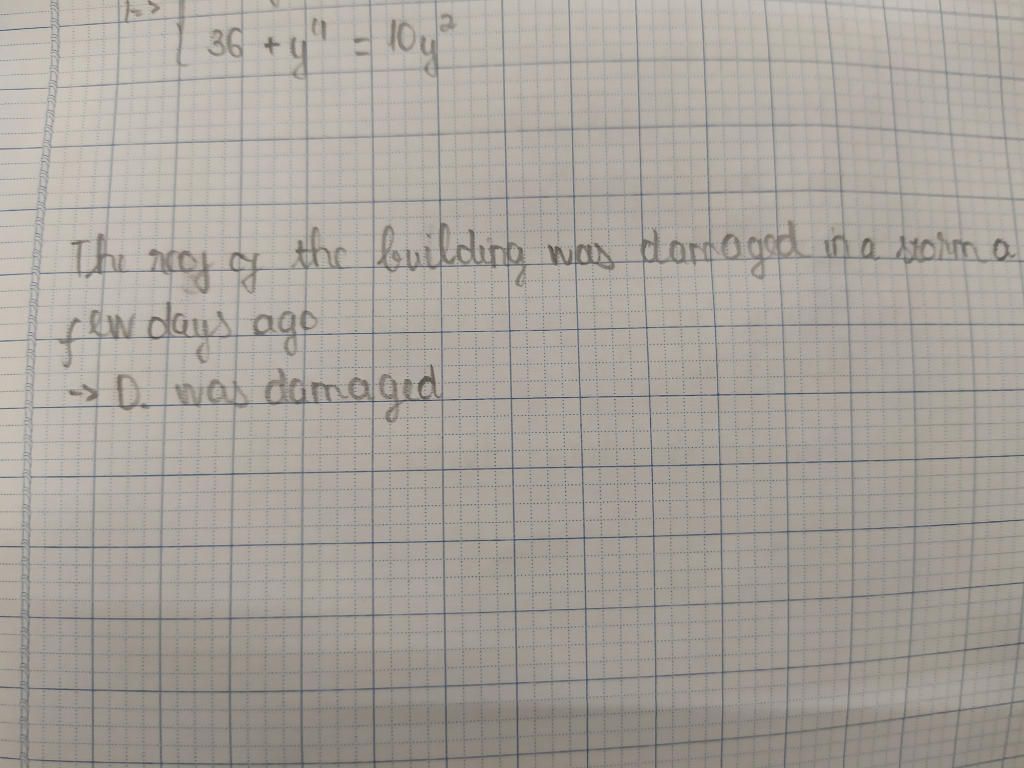 36 + y⁴ = 10y²
The roof of the building was damaged in a storm a
few days ago
→ D. was damaged